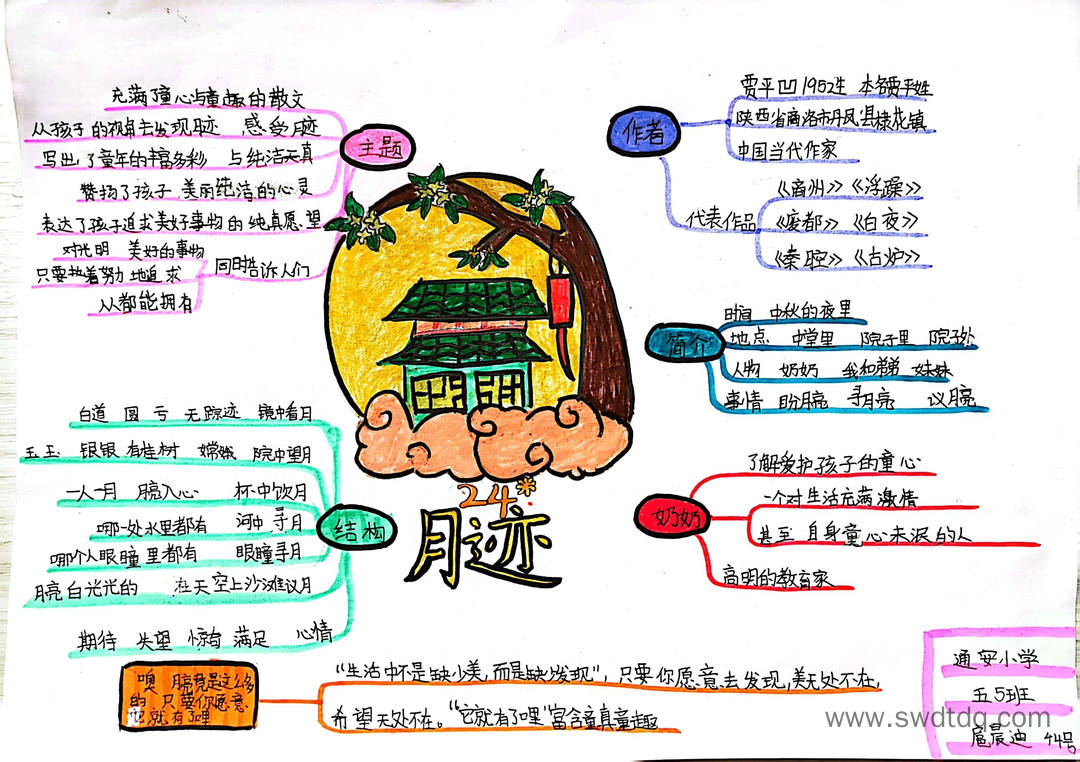 主题
充满了童心与童趣的散文
从孩子的视角去发现月迹 感受月迹
写出了童年的丰富多彩 与纯洁天真
赞扬了孩子美丽纯洁的心灵
表达了孩子追求美好事物的纯真愿望
同时告诉人们
对光明 美好的事物
只要执着努力地追求
从都能拥有
作者
贾平凹1952生 本名贾平娃
陕西省商洛市丹凤县棣花镇
中国当代作家
代表作品
《商州》《浮躁》
《废都》《白夜》
《秦腔》《古炉》
简介
时间 中秋的夜里
地点 中堂里 院子里 院子外
人物 奶奶 我和弟弟 妹妹
事情 盼月亮 寻月亮 议月亮
奶奶
了解爱护孩子的童心
一个对生活充满激情
甚至自身童心未泯的人
高明的教育家
结构
白道 圆 亏 无踪迹 镜中看月
玉玉 银银 有桂树 嫦娥 院中望月
一人一月 月亮入心 杯中饮月
哪一处水里都有 河中寻月
哪个人眼瞳里都有 眼瞳寻月
月亮白光光的 在天空上沙滩议月
期待 失望 惊奇 满足 心情
24*
月迹
噢 月亮竟是这么多
的 只要你愿意
它就有了哩
“生活中不是缺少美,而是缺少发现”,只要你愿意去发现,美无处不在,
希望无处不在。“它就有了哩”富含童真童趣
通安小学
五5班
扈晨迪 44号
www.swdtdq.com